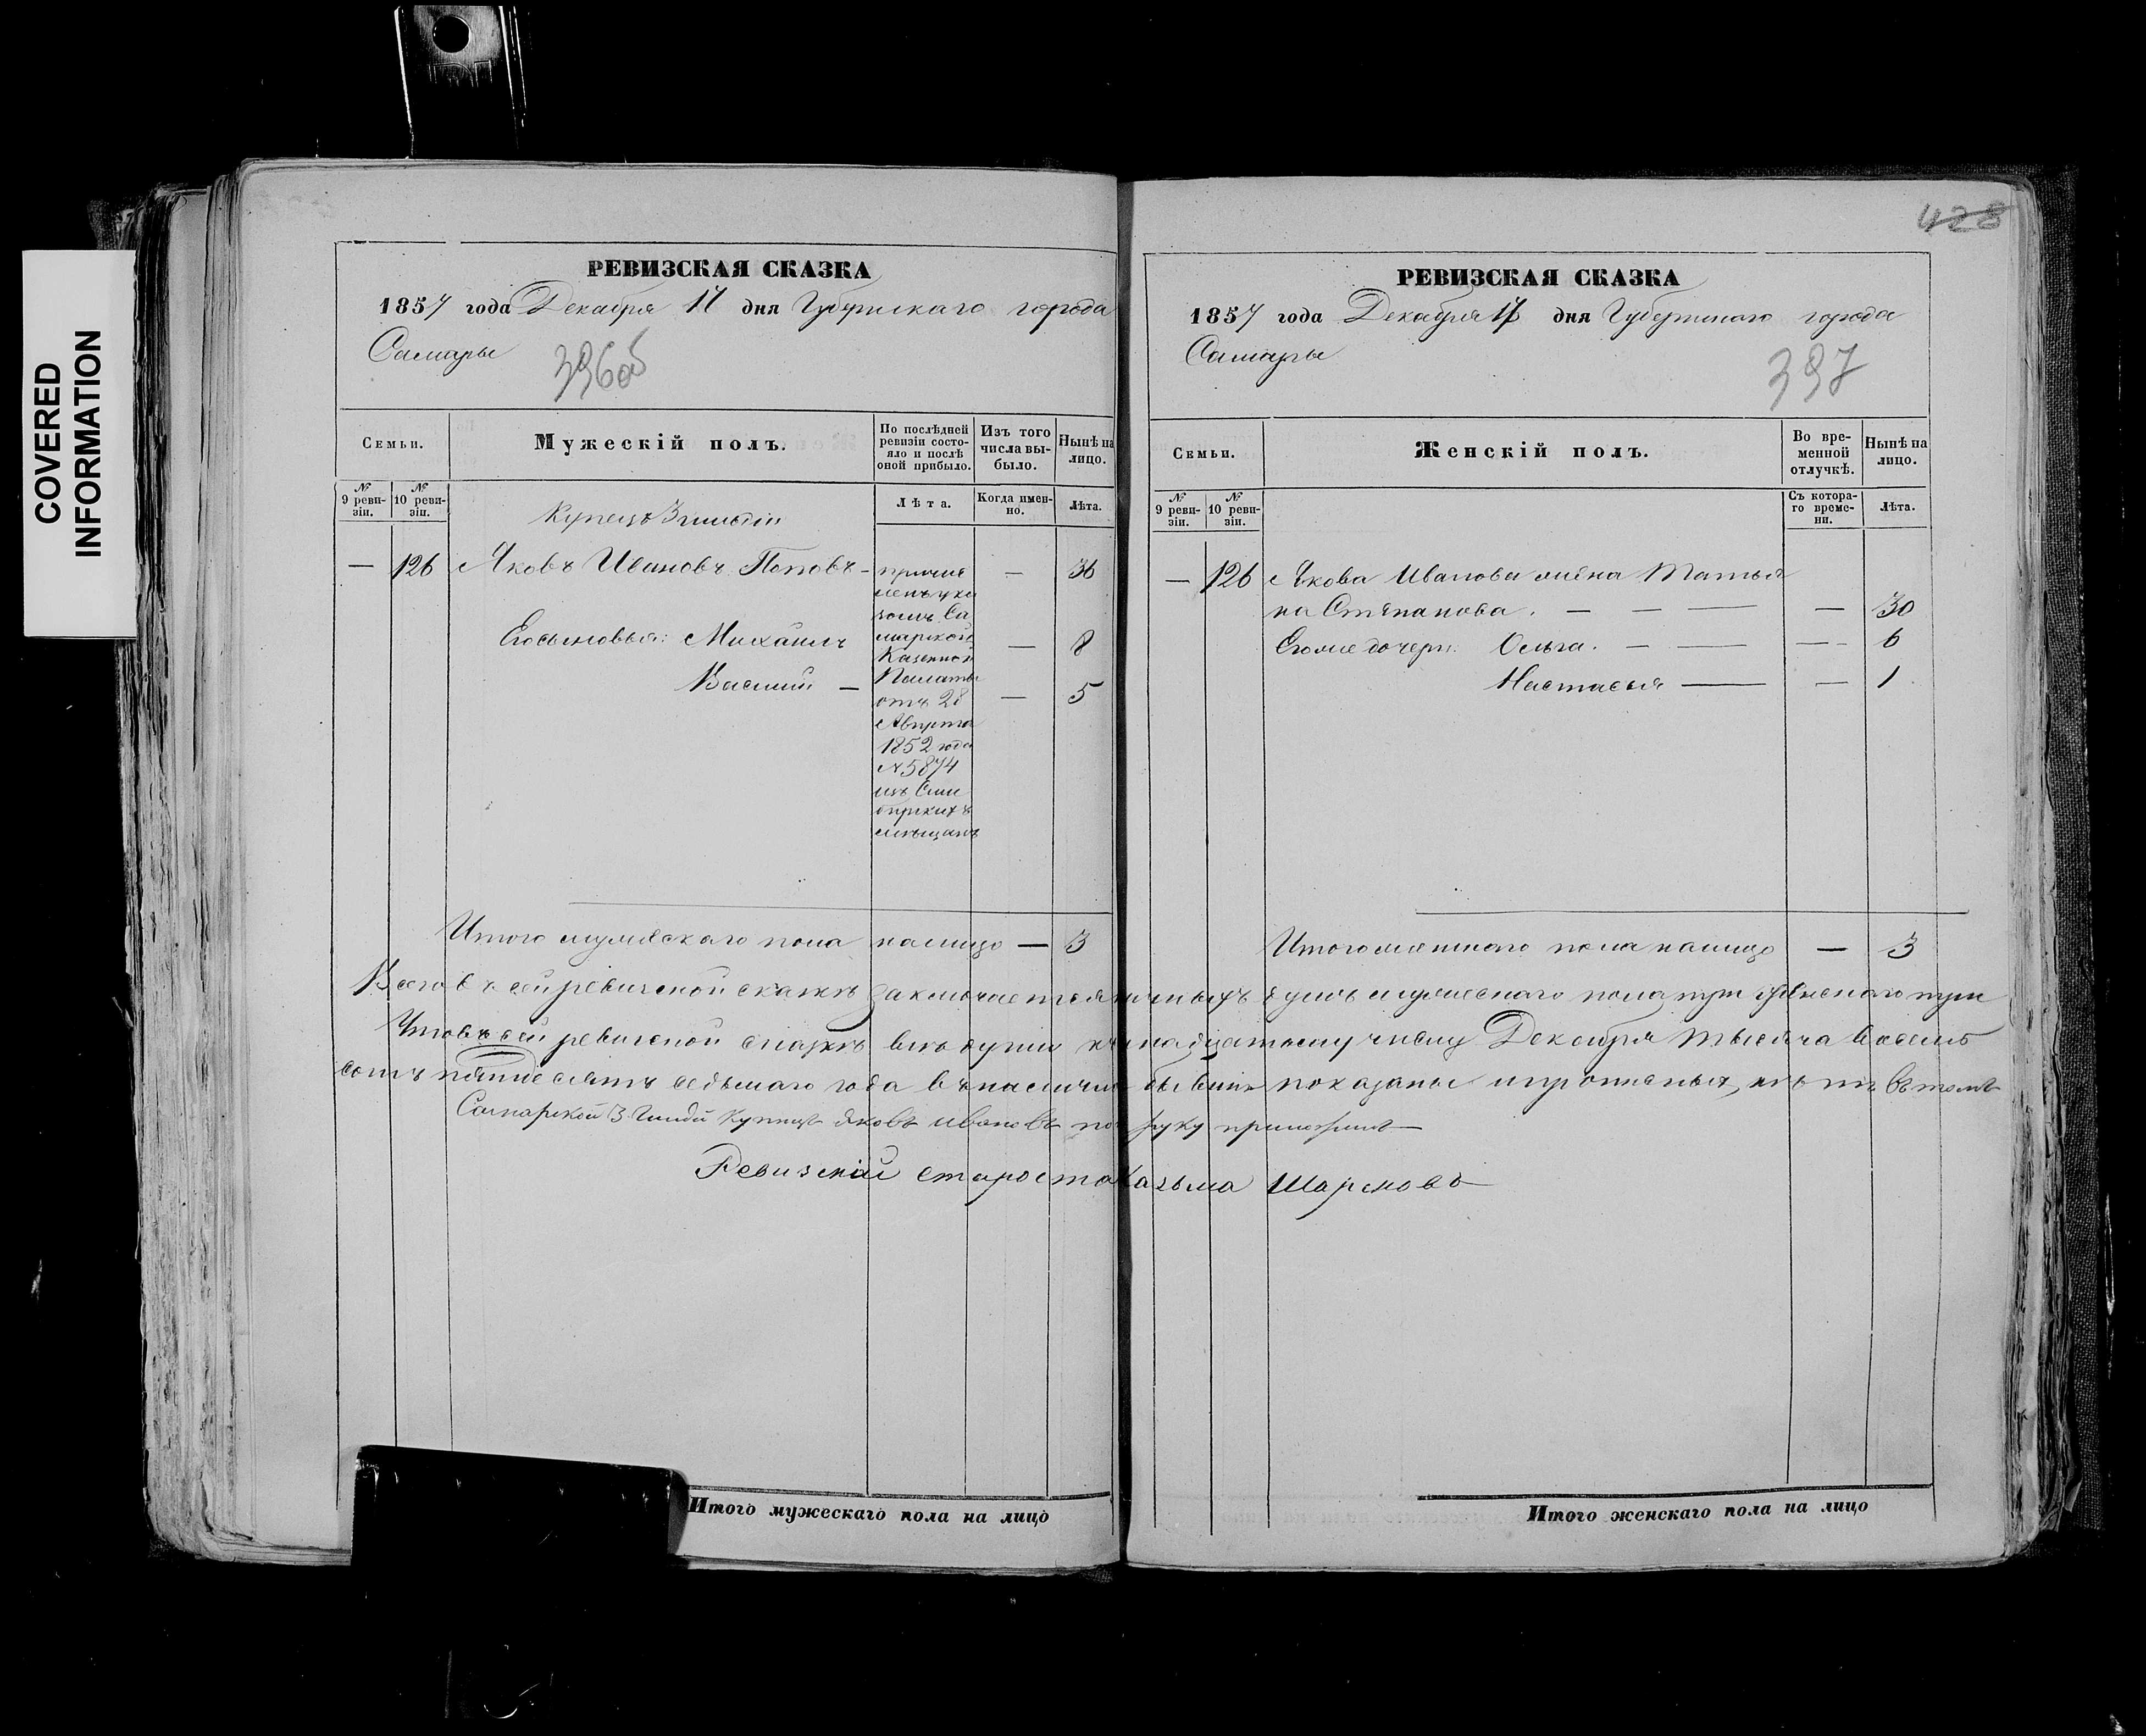 COVERED
INFORMATION
РЕВИЗСКАЯ СКАЗКА
1857 года Декабря 17 дня Губернскаго города
Самары
396об
Семьи.
Мужескій полъ.
По послѣдней ревизіи состо-
яло и послѣ
оной прибыло.
Изъ того
числа вы-
было.
Нынѣ на
лицо.
№
9 реви-
зіи.
№
10 реви-
зіи.
Лѣта.
Когда имен-
но.
Лѣта.
Купецъ 3 гильдіи
— 126 Яковъ Ивановъ Поповъ — — 36
причис
ленъ ука
зомъ Са
марской
Казенной
Палаты
отъ 28
Августа
1852 года
№ 5874
изъ Сим
бирскихъ
мѣщанъ
Его сыновья: Михаилъ — 8
Василий — — 5
Итого мужескаго пола на лицо — 3
428
РЕВИЗСКАЯ СКАЗКА
1857 года Декабря 17 дня Губернскаго города
Самары
397
Семьи.
Женскій полъ.
Во вре-
менной
отлучкѣ.
Нынѣ на
лицо.
№
9 реви-
зіи.
№
10 реви-
зіи.
Съ котора-
го време-
ни.
Лѣта.
— 126 Якова Иванова жена Татья
на Степанова. — — — — 30
Его же дочери: Ольга. — — — 6
Настасья — — 1
Итого женскаго пола на лицо — 3
Всего въ сей ревизской сказкѣ заключается наличныхъ душъ мужескаго пола три женскаго три
Что въ сей ревизской сказкѣ всѣ души къ Декабря тысяча восемь
сотъ пятьдесятъ седьмаго года въ наличии бывшия показаны и прописных нѣтъ въ томъ
Самарской 3 Гильдии купецъ Яковъ Ивановъ руку приложилъ
Ревизский староста Казьма Шарсково
Итого мужескаго пола на лицо
Итого женскаго пола на лицо